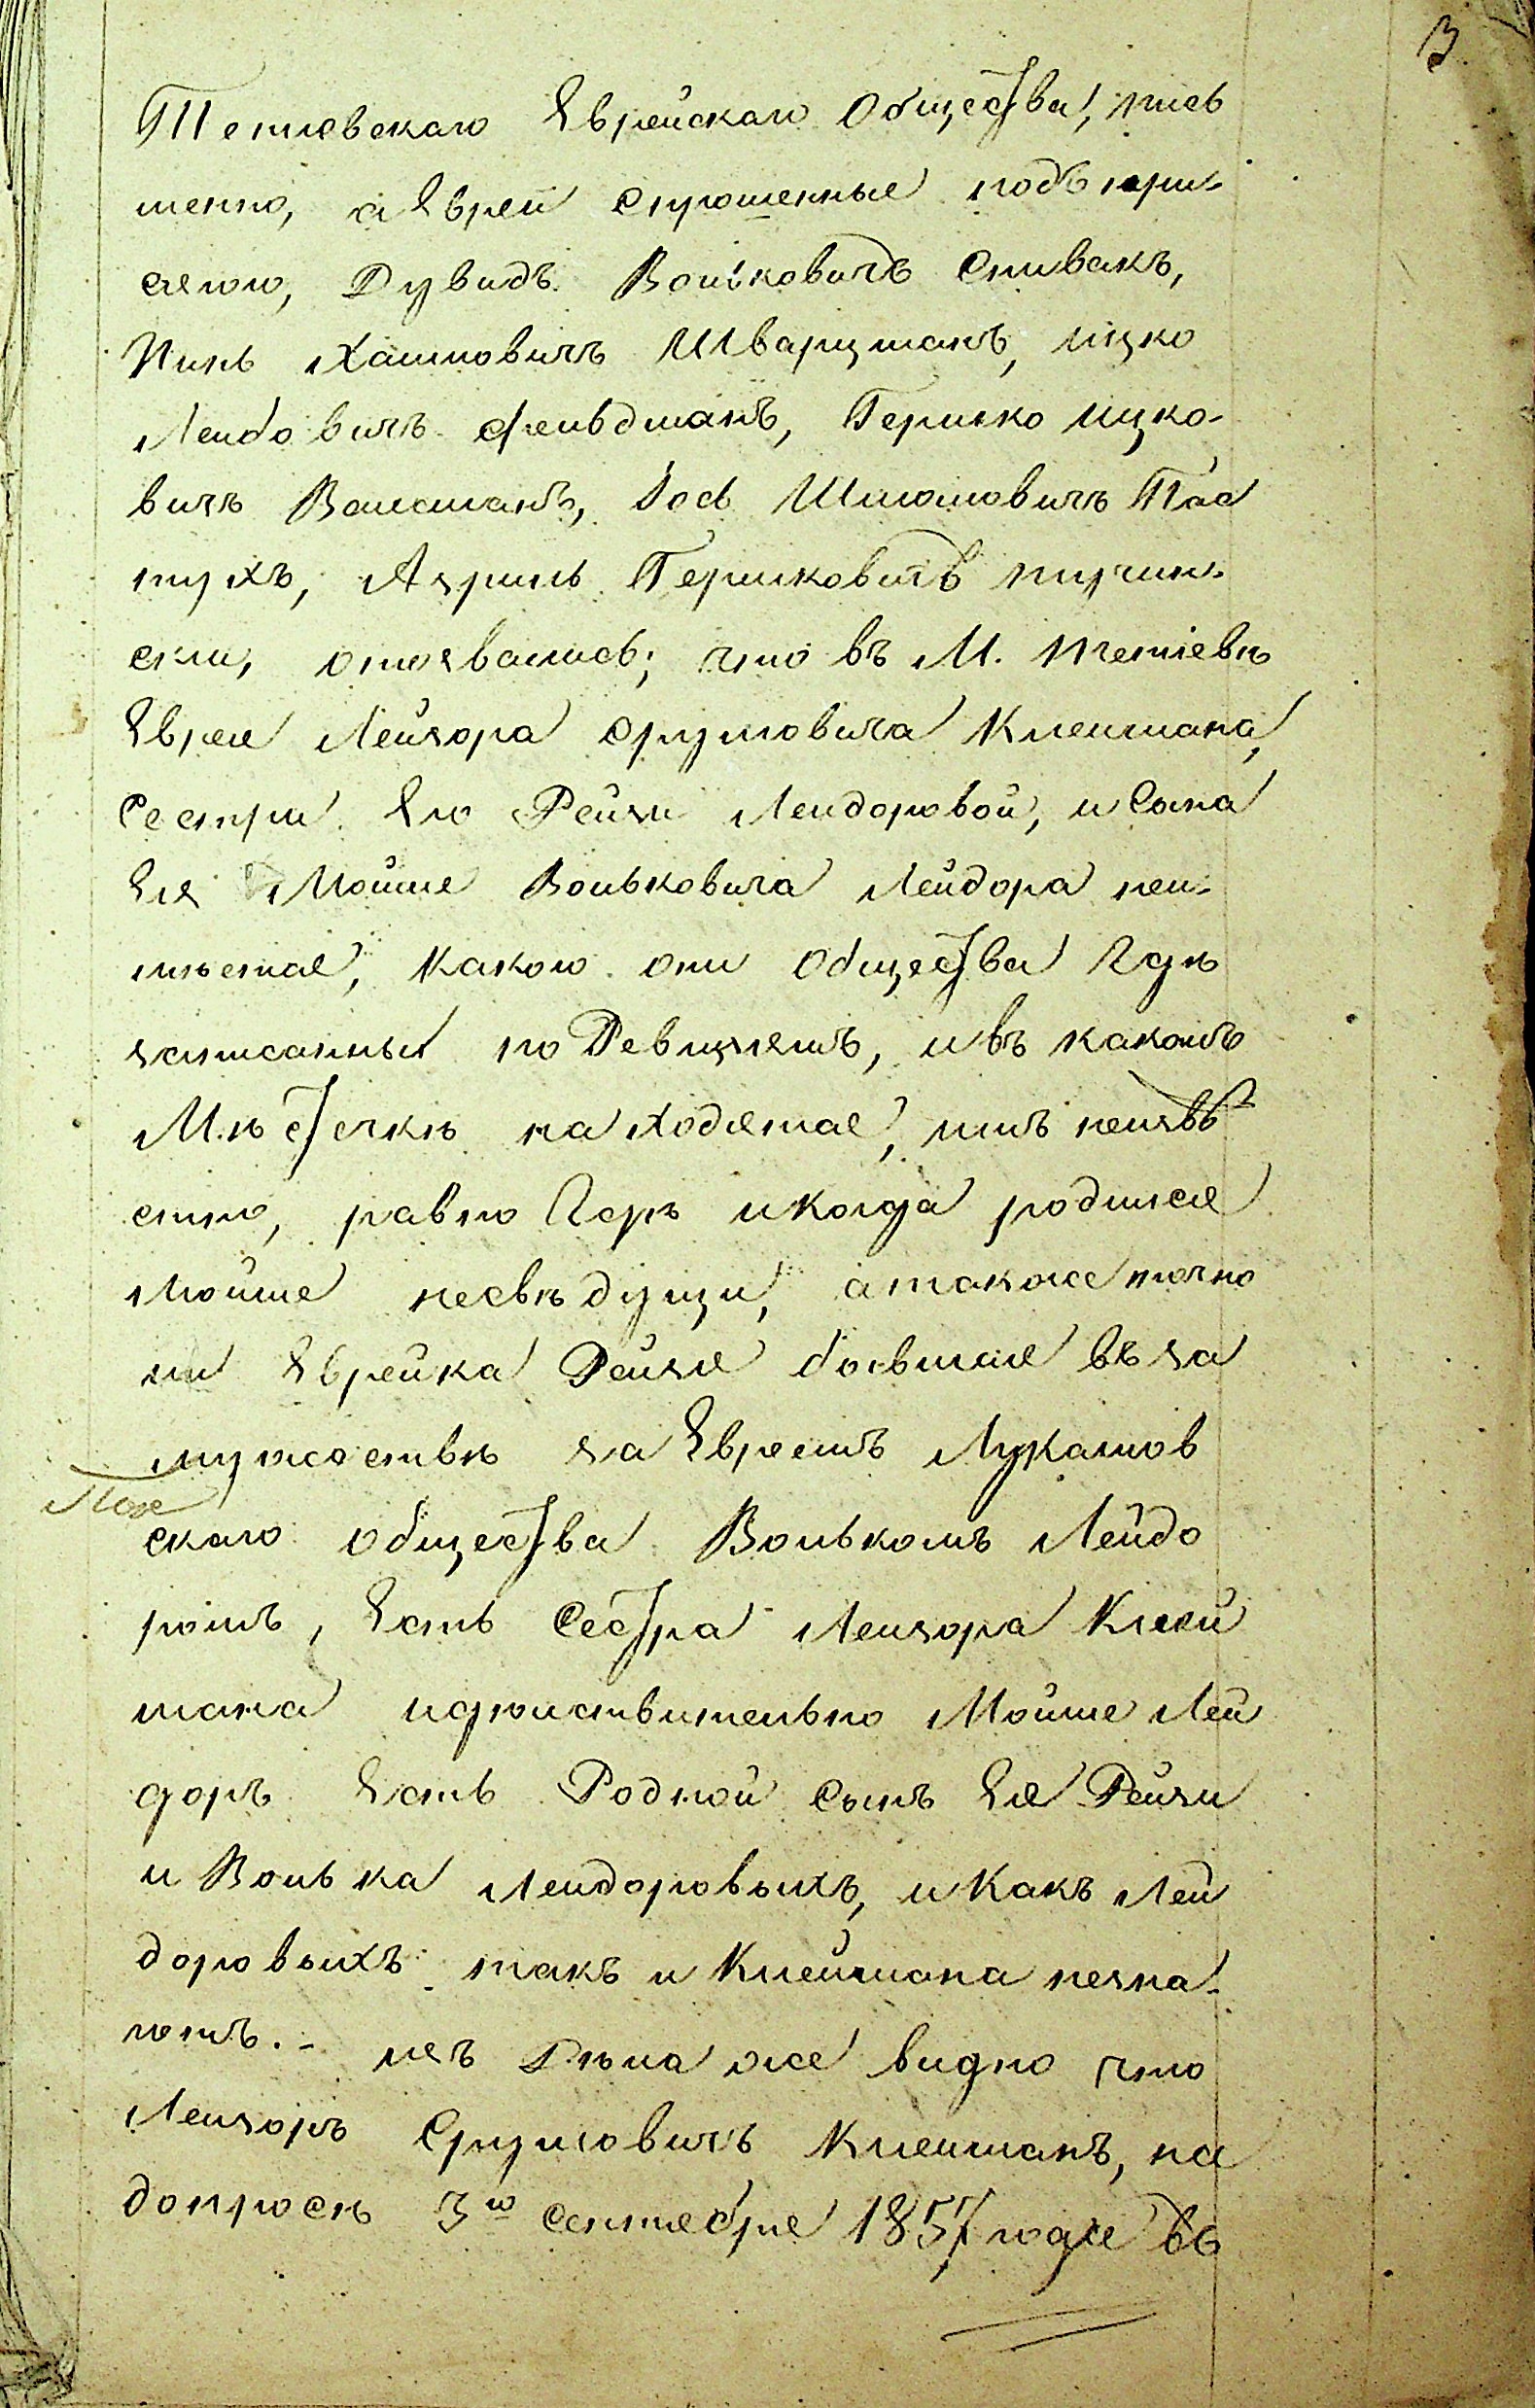 3
Тетіевскаго Еврейскаго Общества, пись
менно, а Евреи спрошенные подъ при-
сягою, Дувидъ Вольковичъ Спивакъ,
Пинь Хаимовичъ Шварцманъ, Ицко
Лейбовичъ Фельдманъ, Гершко Ицко-
вичъ Вайсманъ, Іось Шлиомовичъ Пас
тухъ, Азриль Гершковичъ Пугин-
ски, отозвались; что въ М. Тетіевѣ
Еврея Лейзора Срулювича Клеймана,
Сестри Его Рейзи Лейдоровой, и Сына
Ея Мойше Вольковича Лейдора неи-
мѣется, какого они Общества Где
записанны по Ревизіямъ, и въ какомъ
Мѣстечкѣ находятся, имъ неизвѣ
стно, равно Где и когда родился
Мойше несвѣдущи, а также точно
ли Еврейка Рейзя бывшая въ за
мужествѣ за Евреемъ Лукашов
Пол
скаго общества Волькомъ Лейдо
ромъ, Есть Сестра Лейзора Клей
мана и дѣйствительно Мойше Лей
доръ Есть Родной Сынъ Ея Рейзи
и Волька Лейдоровыхъ, и Какъ Лей
доровыхъ такъ и Клеймана незна-
ютъ.- изъ Дѣла же видно что
Лейзоръ Срулювичъ Клейманъ, на
допросѣ 3го Сентября 1857 года въ